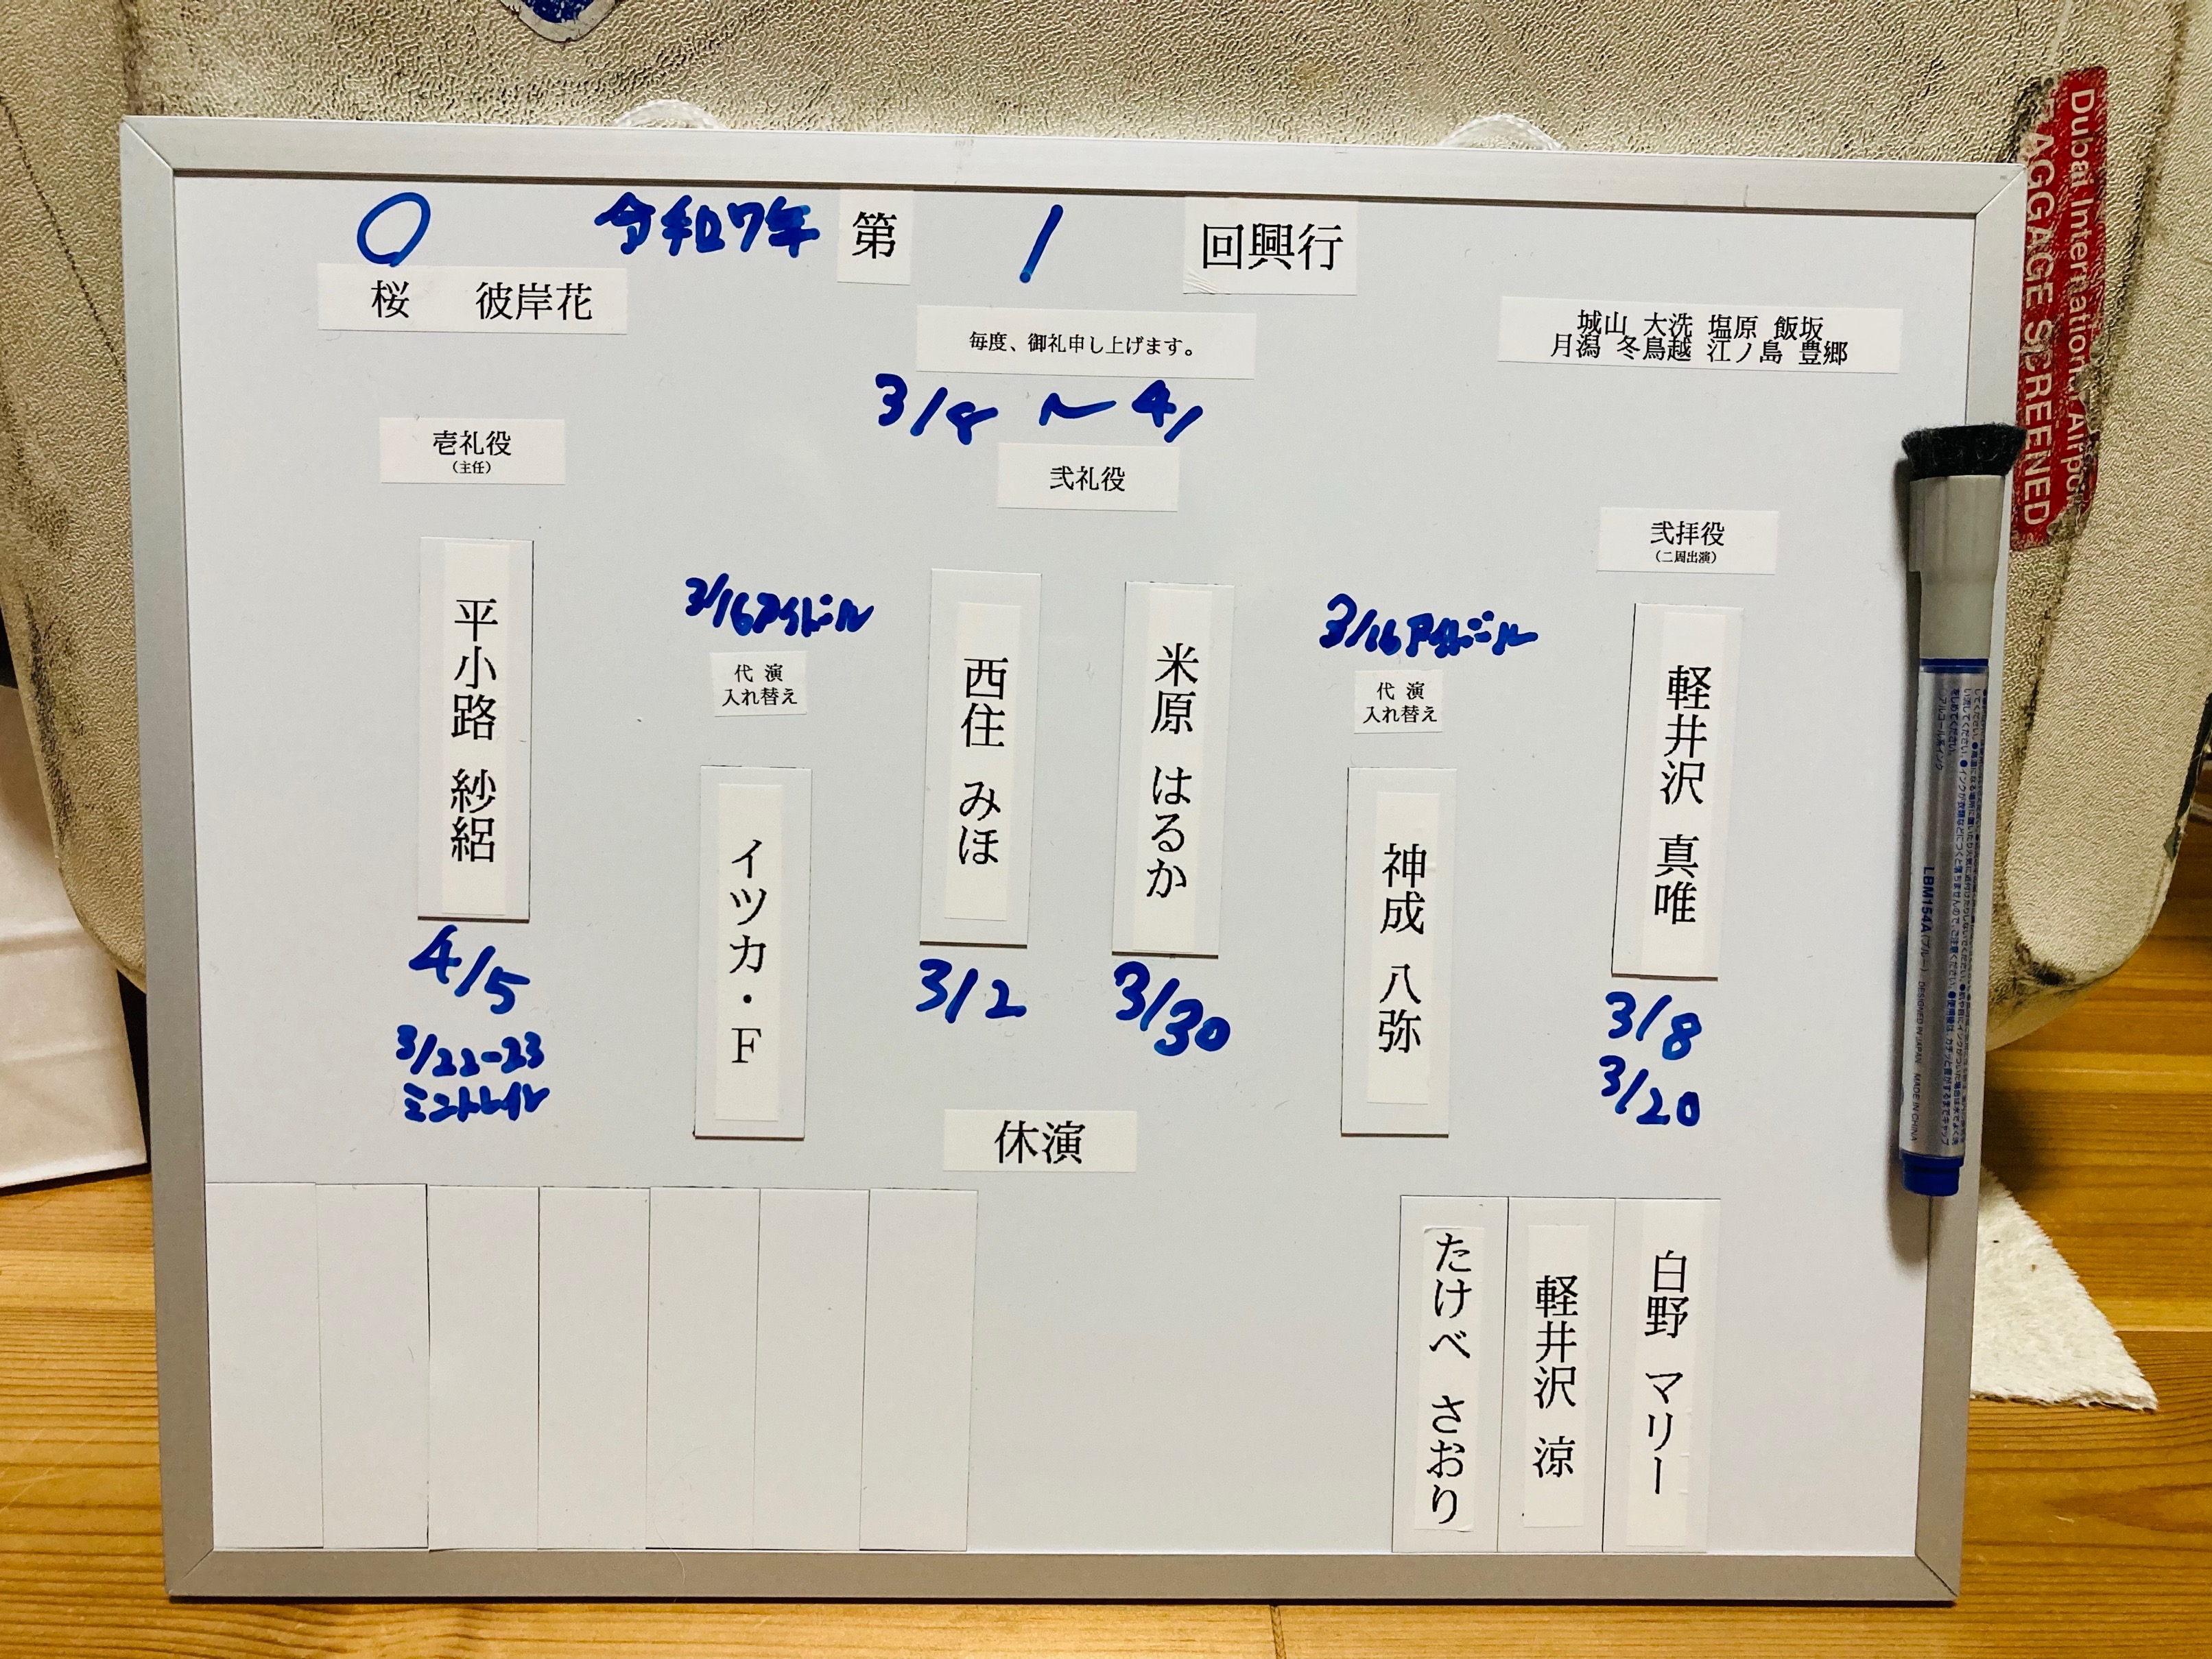 令和7年 第 1 回興行
桜 彼岸花
毎度、御礼申し上げます。
城山 大洗 塩原 飯坂
月潟 冬鳥越 江ノ島 豊郷
3/8 〜 4/
壱礼役
(主任)
弐礼役
弐拝役
(二周出演)
平小路 紗絽
4/5
3/22-23
ミントレイル
3/16アイドール
代演
入れ替え
イツカ・F
西住 みほ
3/2
米原 はるか
3/30
3/16アイドール
代演
入れ替え
神成 八弥
軽井沢 真唯
3/8
3/20
休演
たけべ さおり
軽井沢 涼
白野 マリー
Dubai International Airpo
AGGAGE SCREENED
LBM154A(ブルー) DESIGNED IN JAPAN MADE IN CHINA